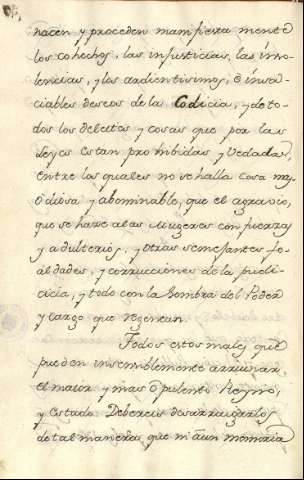 nacen y proceden manifiesta mente
los cohechos, las injusticias, las inso-
lencias, y los ardientisimos, è insa-
ciables deseos de la Codicia, y de to-
dos los delectos y cosas que por las
Leyes estan prohibidas, y Vedadas,
entre las quales no se halla cosa mas
Odiosa y abominable, que el agravio,
que se hace alas Mugeres con fuerzas
y adulterios, y otras semejantes fe-
aldades, y corrucciones de la pudi-
cicia, y todo con la Sombra del Poder
y cargo que regentan.
Todos estos males, que
pueden insensiblemente arruinar
el maior y mas opulento Reyno,
y Estado. Debereis desarraygarlos
de tal manera, que ni aun memoria